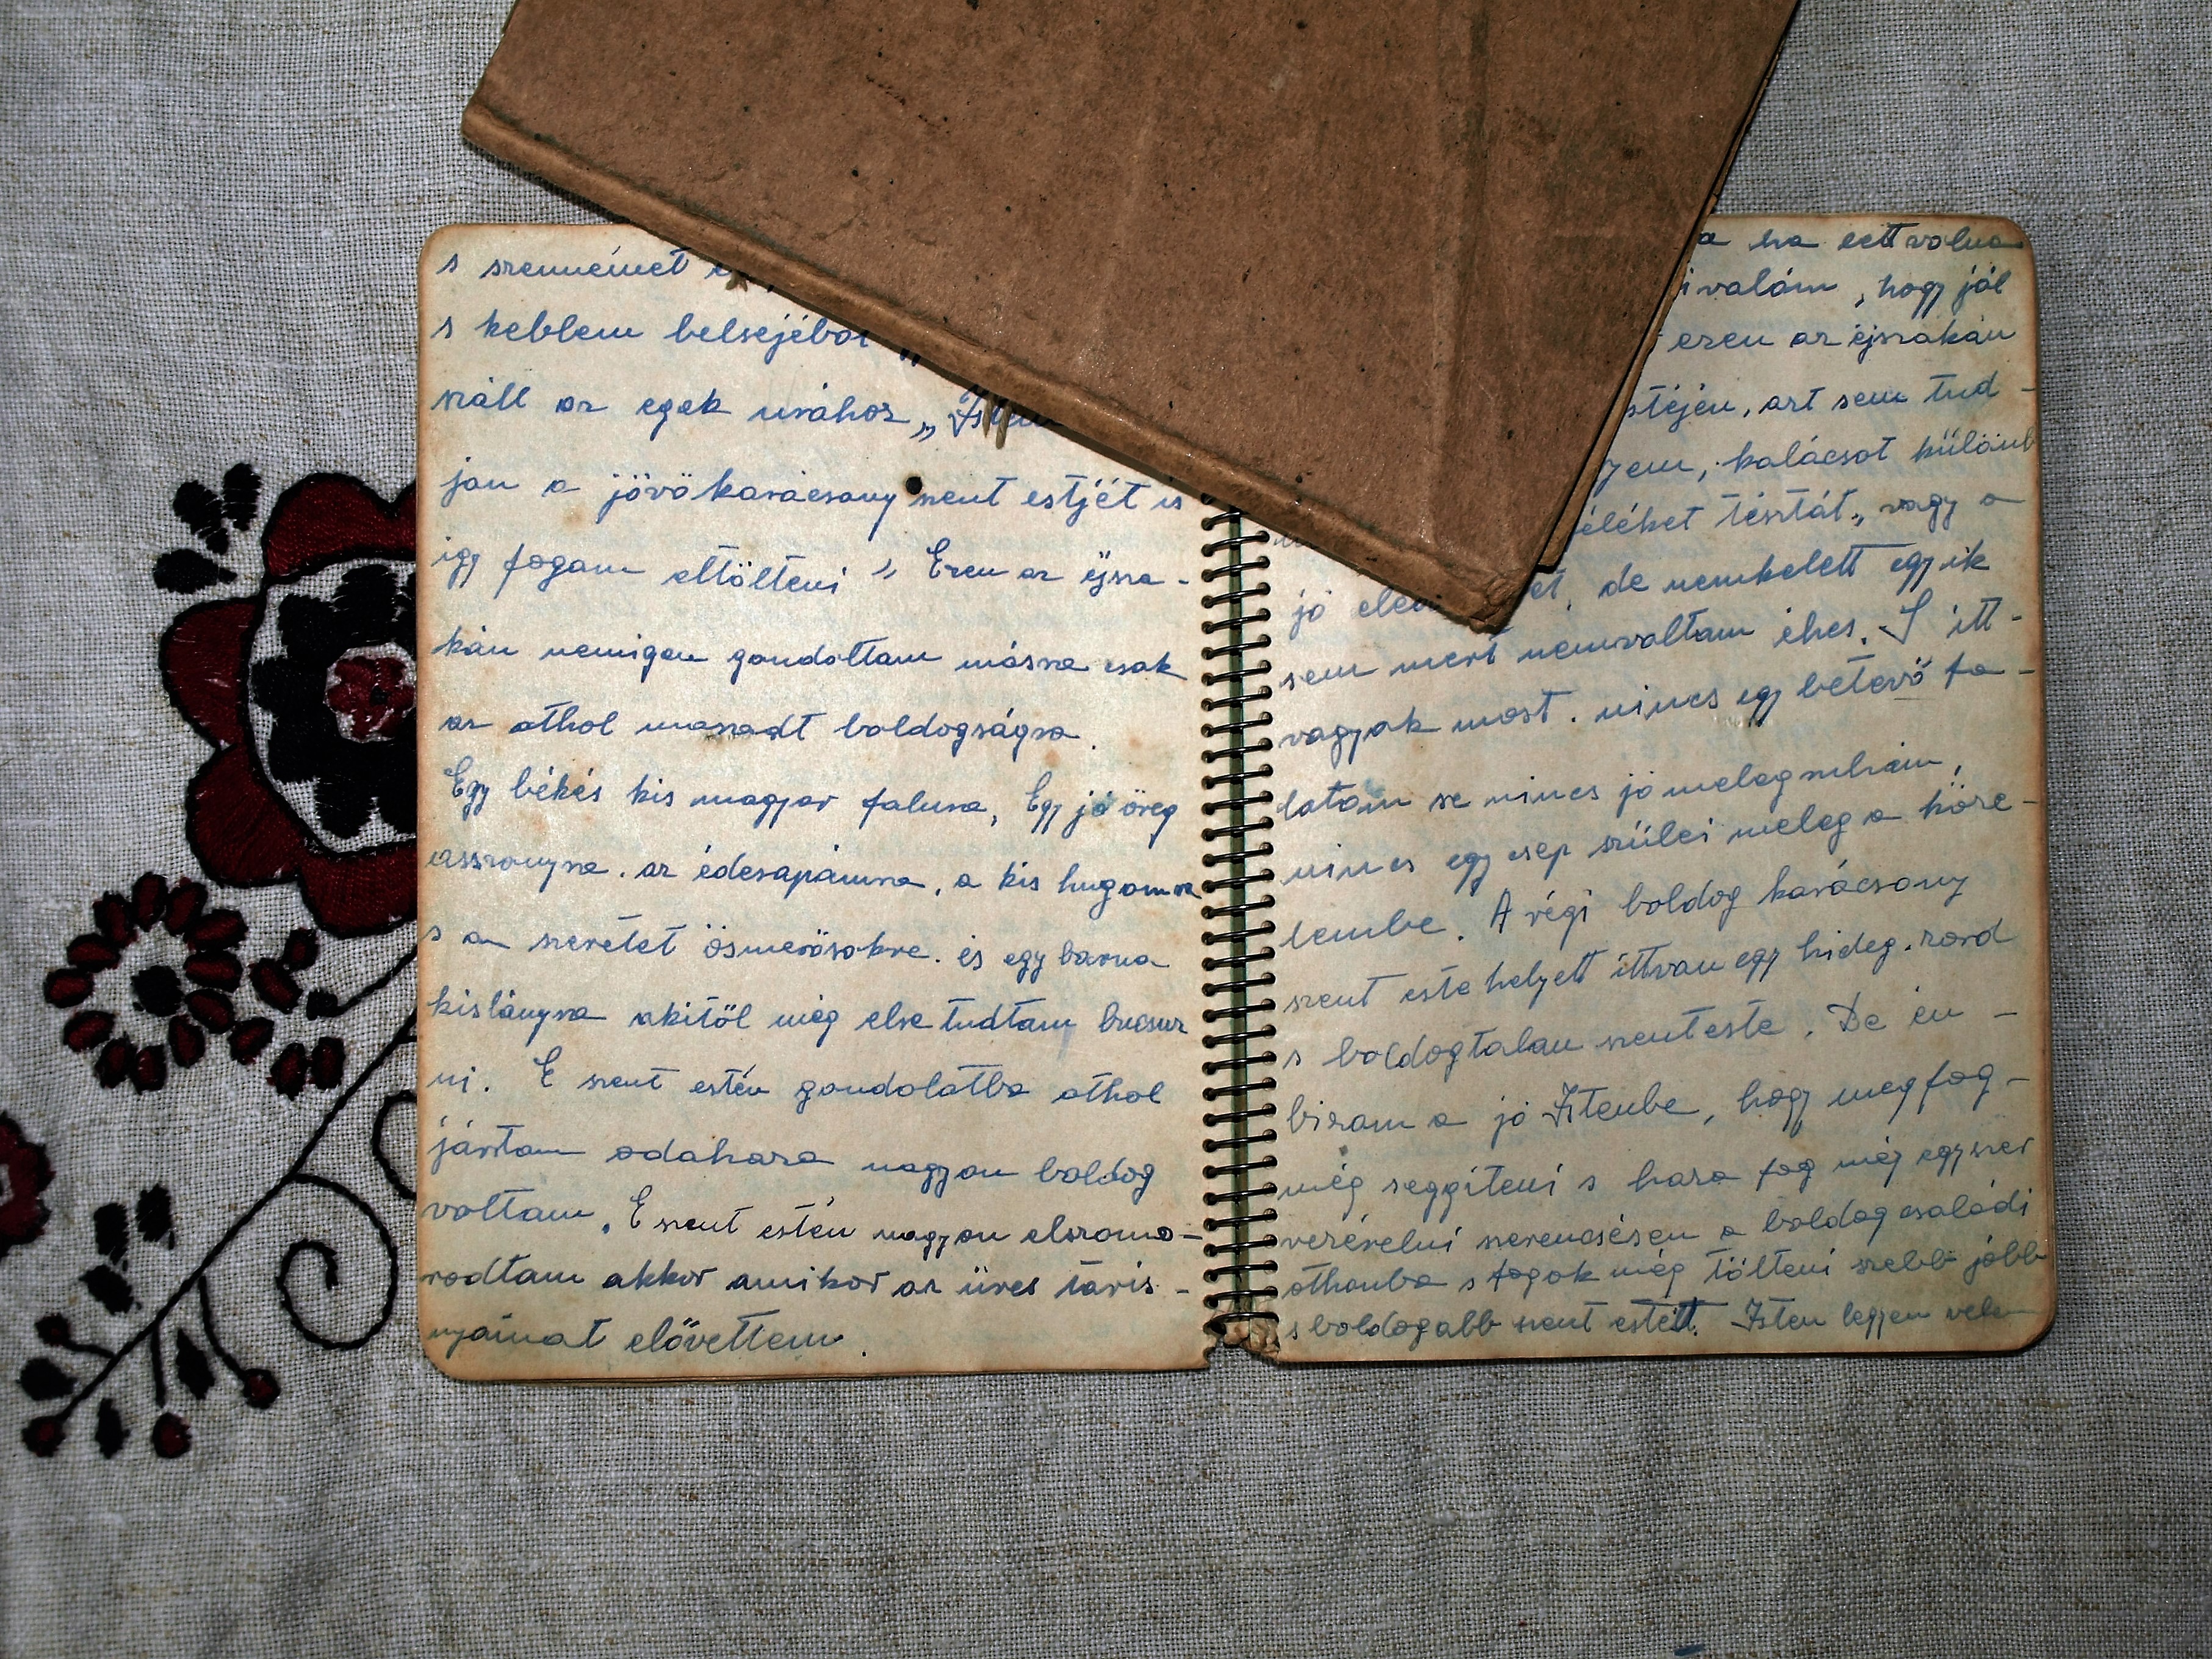 s szemémet
s keblem belsejéből „
száll az egek urához „ Isten
jon a jövő karácsony szent estjét is
így fogom eltölteni „ Ezen az éjsza-
kán nemigen gondoltam másra csak
az othol maradt boldogságra.
Egy békés kis magyar falura, Egy jó öreg
asszonyra. az édesapámra, a kis hugomra
s a szeretet ösmerősökre. és egy barna
kislányra akitöl még else tudtam bucsuz
ni. E szent estén gondolatba othol
jártam odahaza nagyon boldog
voltam. E szent estén nagyon elszomo-
rodtam akkor amikor az üres táris-
nyámat elővettem.
a ha lett volna
ivalóm, hogy jól
ezen az éjszakán
stéjén, azt sem tud-
gyem, kalácsot külömb
éléket tésztát, vagy a
jó eled et, de nemkelett egyik
sem mert nemvoltam éhes. S itt-
vagyok most. nincs egy betevő fa-
latom se nincs jó meleg ruhám,
nincs egy csep szülei meleg a köze-
lembe. A régi boldog karácsony
szent este helyett ittvan egy hideg. zord
s boldogtalan szenteste. De én-
bizom a jó Istenbe, hogy megfog-
még seggíteni s haza fog még egyszer
vezérelni szerencsésen a boldog családi
othonba s fogok még tölteni szebb jobb
s boldogabb szent estét. Isten legyen vele